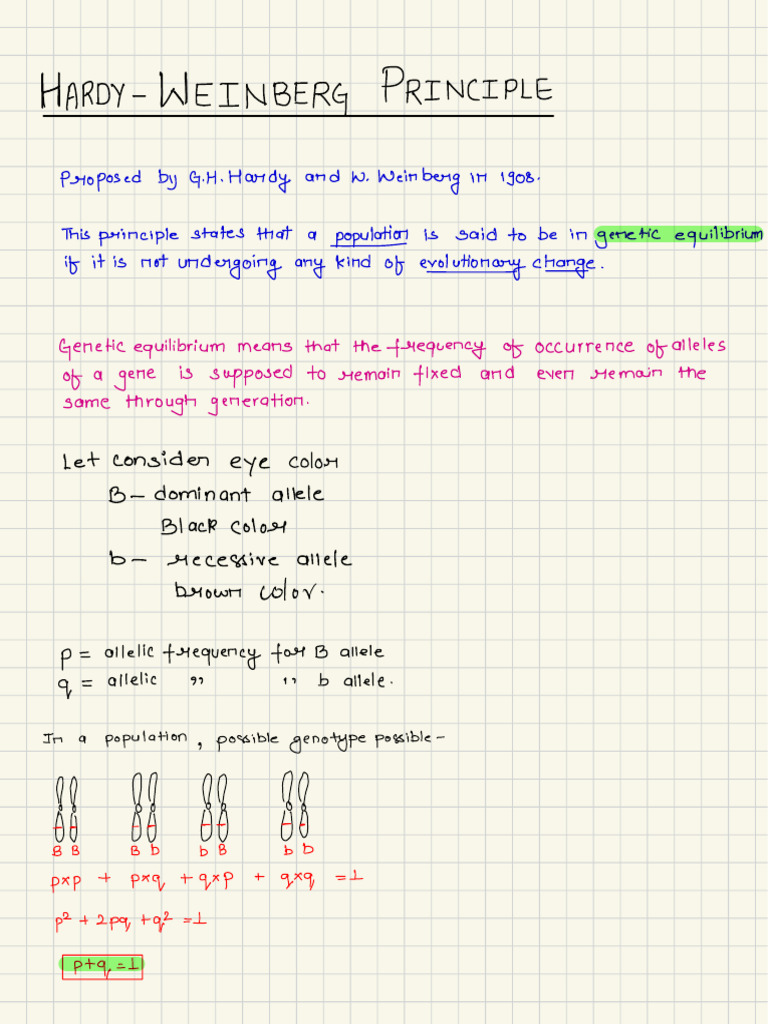 HARDY-WEINBERG PRINCIPLE
Proposed by G.H. Hardy and W. Weinberg in 1908.
This principle states that a population is said to be in genetic equilibrium
if it is not undergoing any kind of evolutionary change.
Genetic equilibrium means that the frequency of occurrence of alleles
of a gene is supposed to remain fixed and even remain the
same through generation.
Let consider eye color
B- dominant allele
Black color
b- recessive allele
brown color.
p = allelic frequency for B allele
q = allelic " " b allele.
In a population, possible genotype possible-
B B B b b B b b
p×p + p×q + q×p + q×q = 1
p² + 2pq + q² = 1
p+q = 1